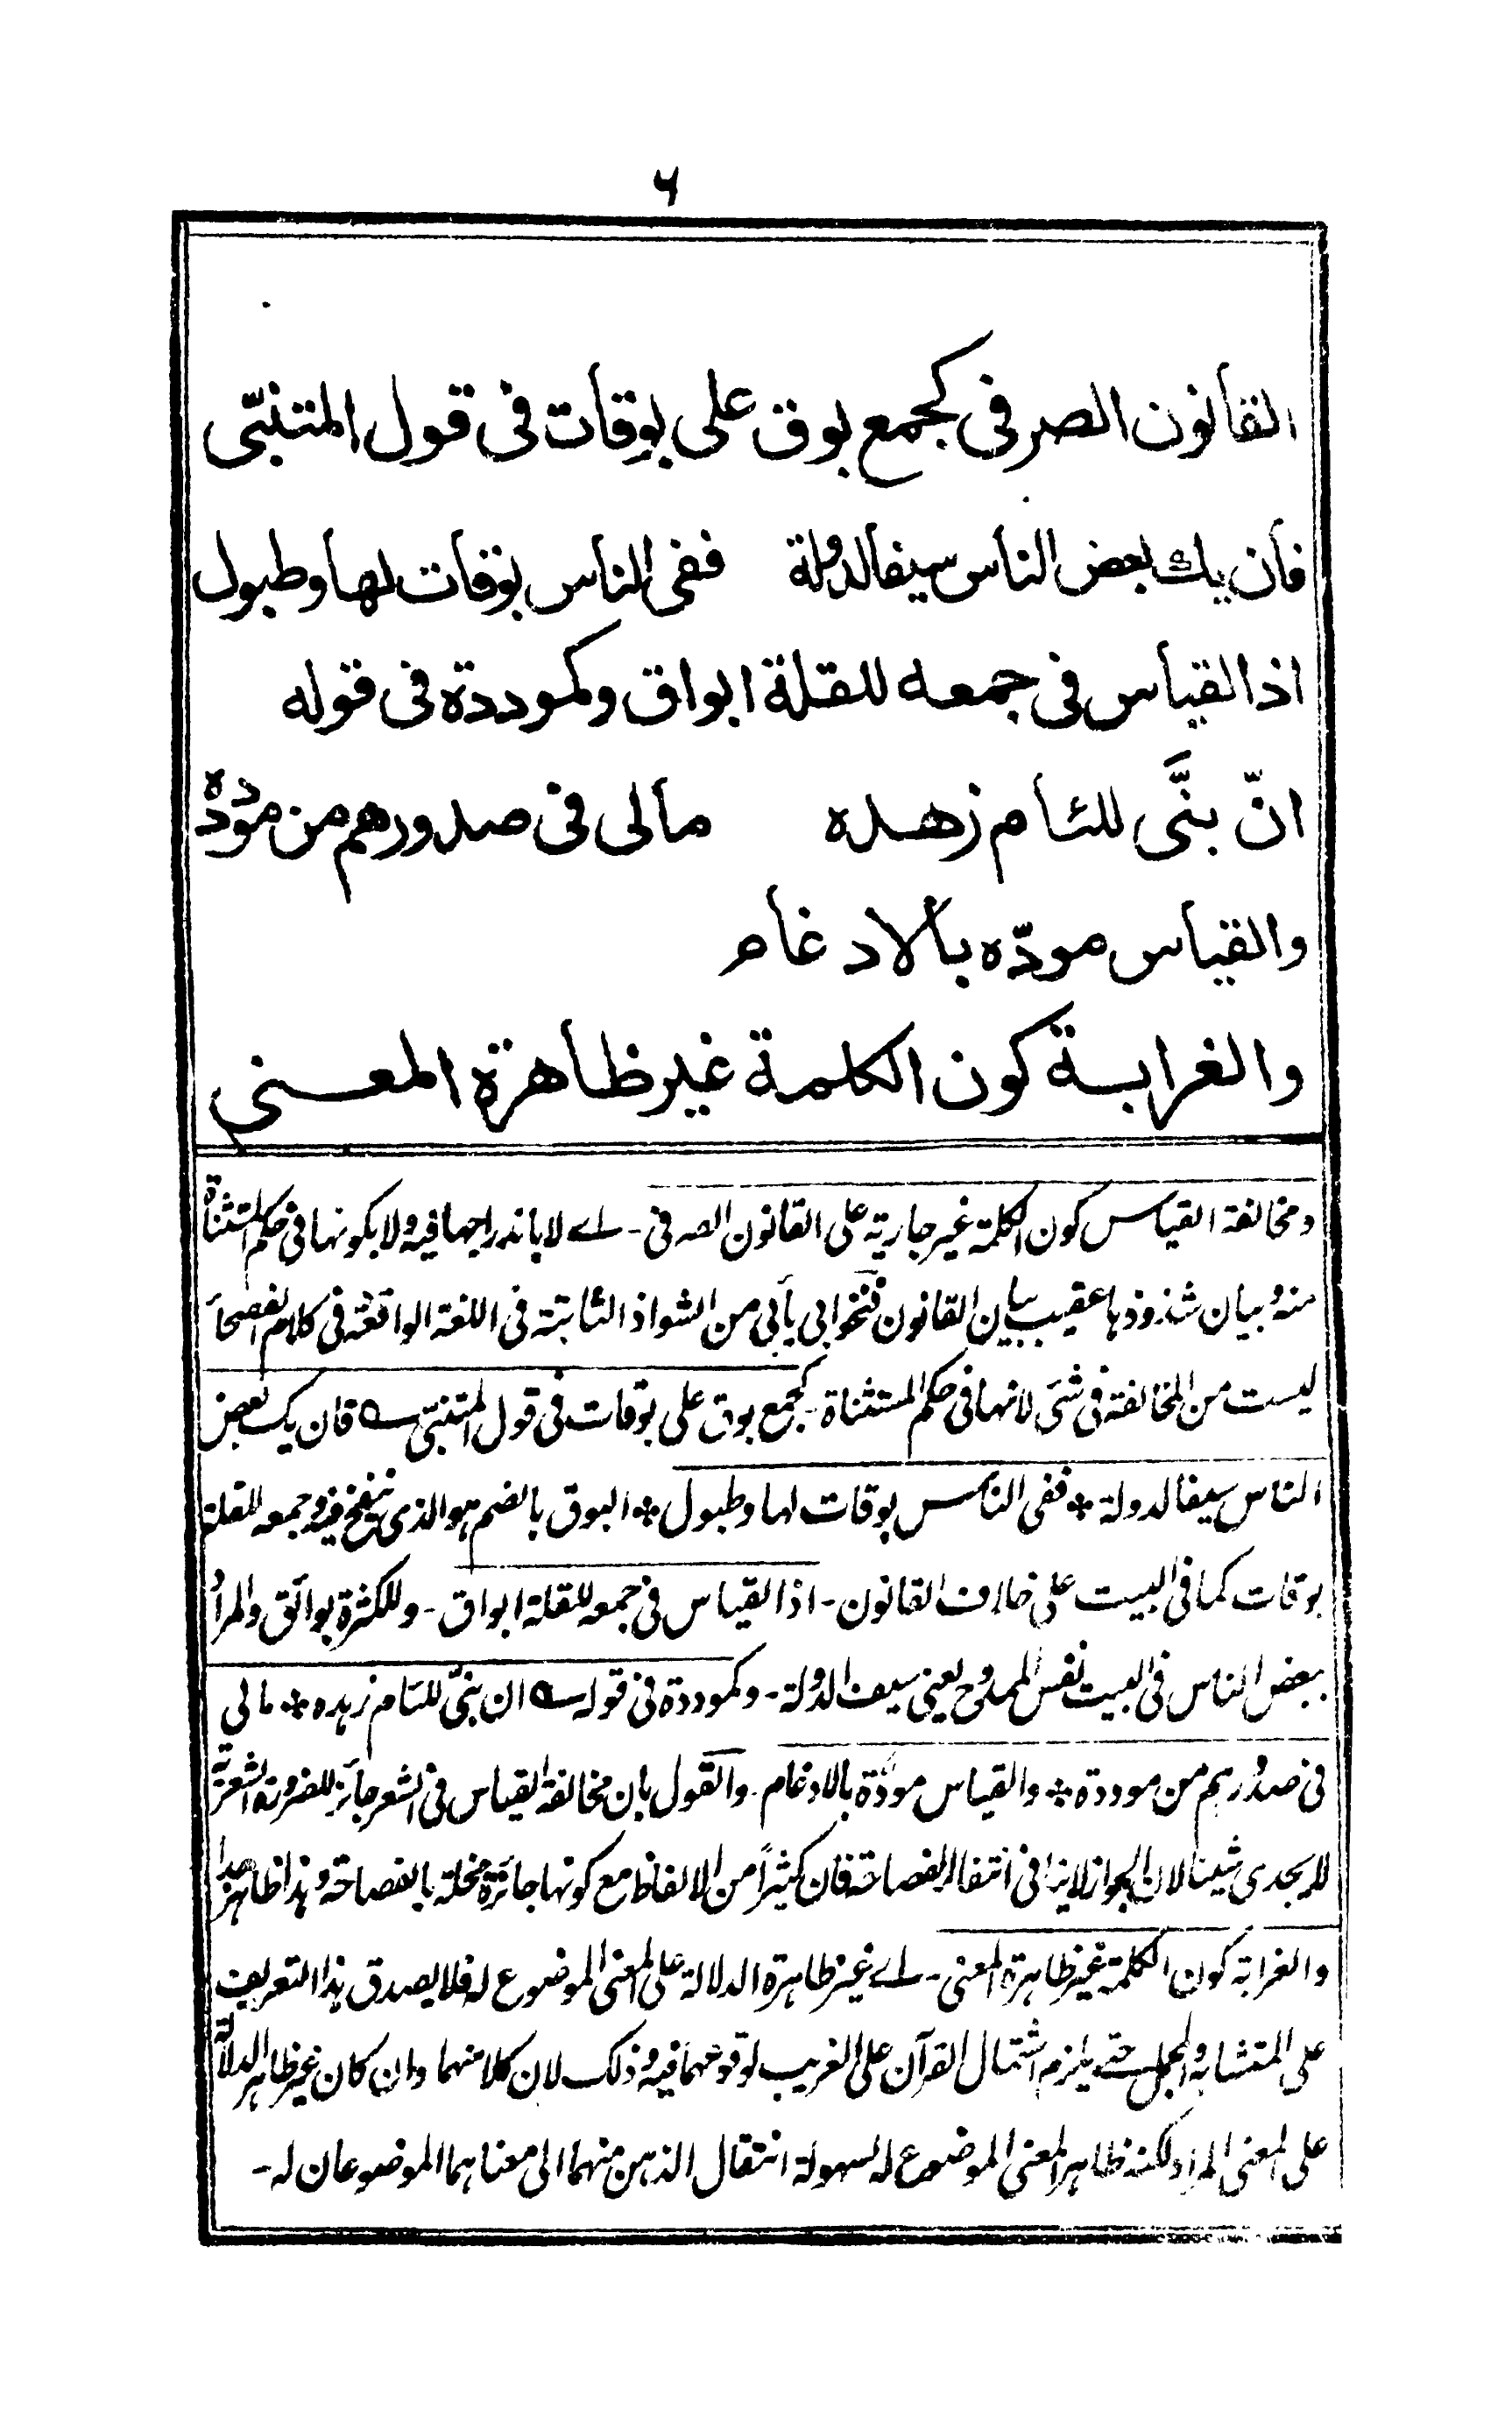 ۶
القانون الصرفى كجمع بوق على بوقات فى قول المتنبّى
فان يك بعض الناس سيفا لدولة ففى الناس بوقات لها وطبول
اذ القياس فى جمعه للقلة ابواق وكموددة فى قوله
انّ بنَّى للئام زهده مالى فى صدورهم من موددة
والقياس مودّه بالادغام
والغرابة كون الكلمة غير ظاهرة المعنى
ومخالفة القياس كون الكلمة غير جارية على القانون الصرفى - اے لا باندراجها فيه ولا بكونها فى حكم المستثناة
منه وبيان شذوذها عقيب بيان القانون فنحو ابى يأبى من الشواذ الثابتة فى اللغة الواقعة فى كلام الفصحاء
ليست من المخالفة فى شئ لانها فى حكم المستثناة - كجمع بوق على بوقات فى قول المتنبّى ؎ فان يك بعض
الناس سيفا لدولة * ففى الناس بوقات لها وطبول * البوق بالضم هو الذى ينفخ فيه وجمعه للقلة
بوقات كما فى البيت على خلاف القانون - اذ القياس فى جمعه للقلة ابواق - وللكثرة بوائق والمراد
ببعض الناس فى البيت نفس الممدوح يعنى سيف الدولة - وكموددة فى قوله ؎ ان بنىّ للئام زهده * مالي
فى صدورهم من موددة * والقياس مودّة بالادغام - والقول بان مخالفة القياس فى الشعر جائز للضرورة الشعرية
لا يجدى شيئا لان الجواز لا ينافى انتفاء الفصاحة فان كثيراً من الالفاظ مع كونها جائزة مخلة بالفصاحة وهذا ظاهر جدا
والغرابة كون الكلمة غير ظاهرة المعنى - اے غير ظاهرة الدلالة على المعنى الموضوع له فلا يصدق هذا التعريف
على المتشابه والمجمل حتے يلزم اشتمال القرآن على الغريب لوقوعهما فيه وذلك لان كلا منهما وان كان غير ظاهر الدلالة
على المعنى المراد لكنه ظاهر المعنى الموضوع له لسهولة انتقال الذهن منهما الى معناهما الموضوعان له -